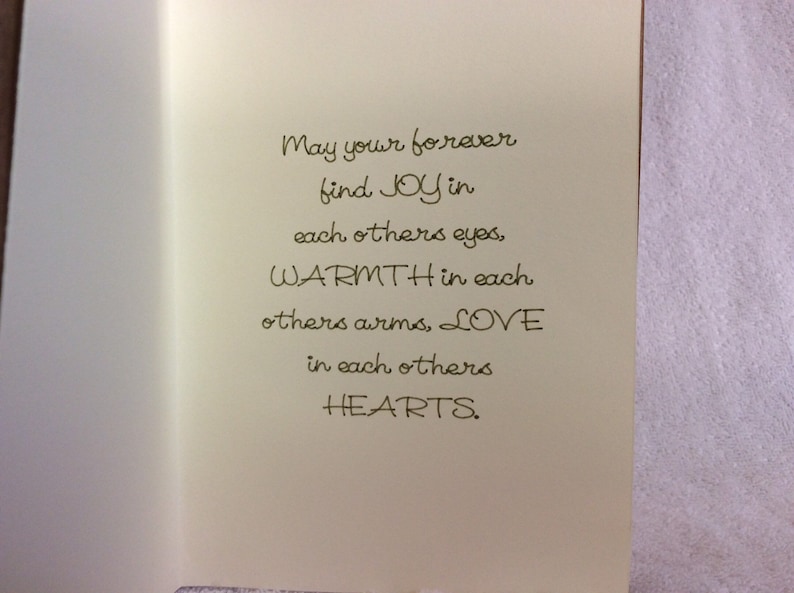 May your forever
find JOY in
each others eyes,
WARMTH in each
others arms, LOVE
in each others
HEARTS.